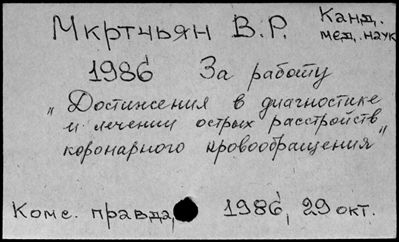 Мкртчьян В.Р. Канд.
мед. наук
1986 За работу
„Достижения в диагностике
и лечении острых расстройств
коронарного кровообращения”
Комс. правда, 1986, 29 окт.